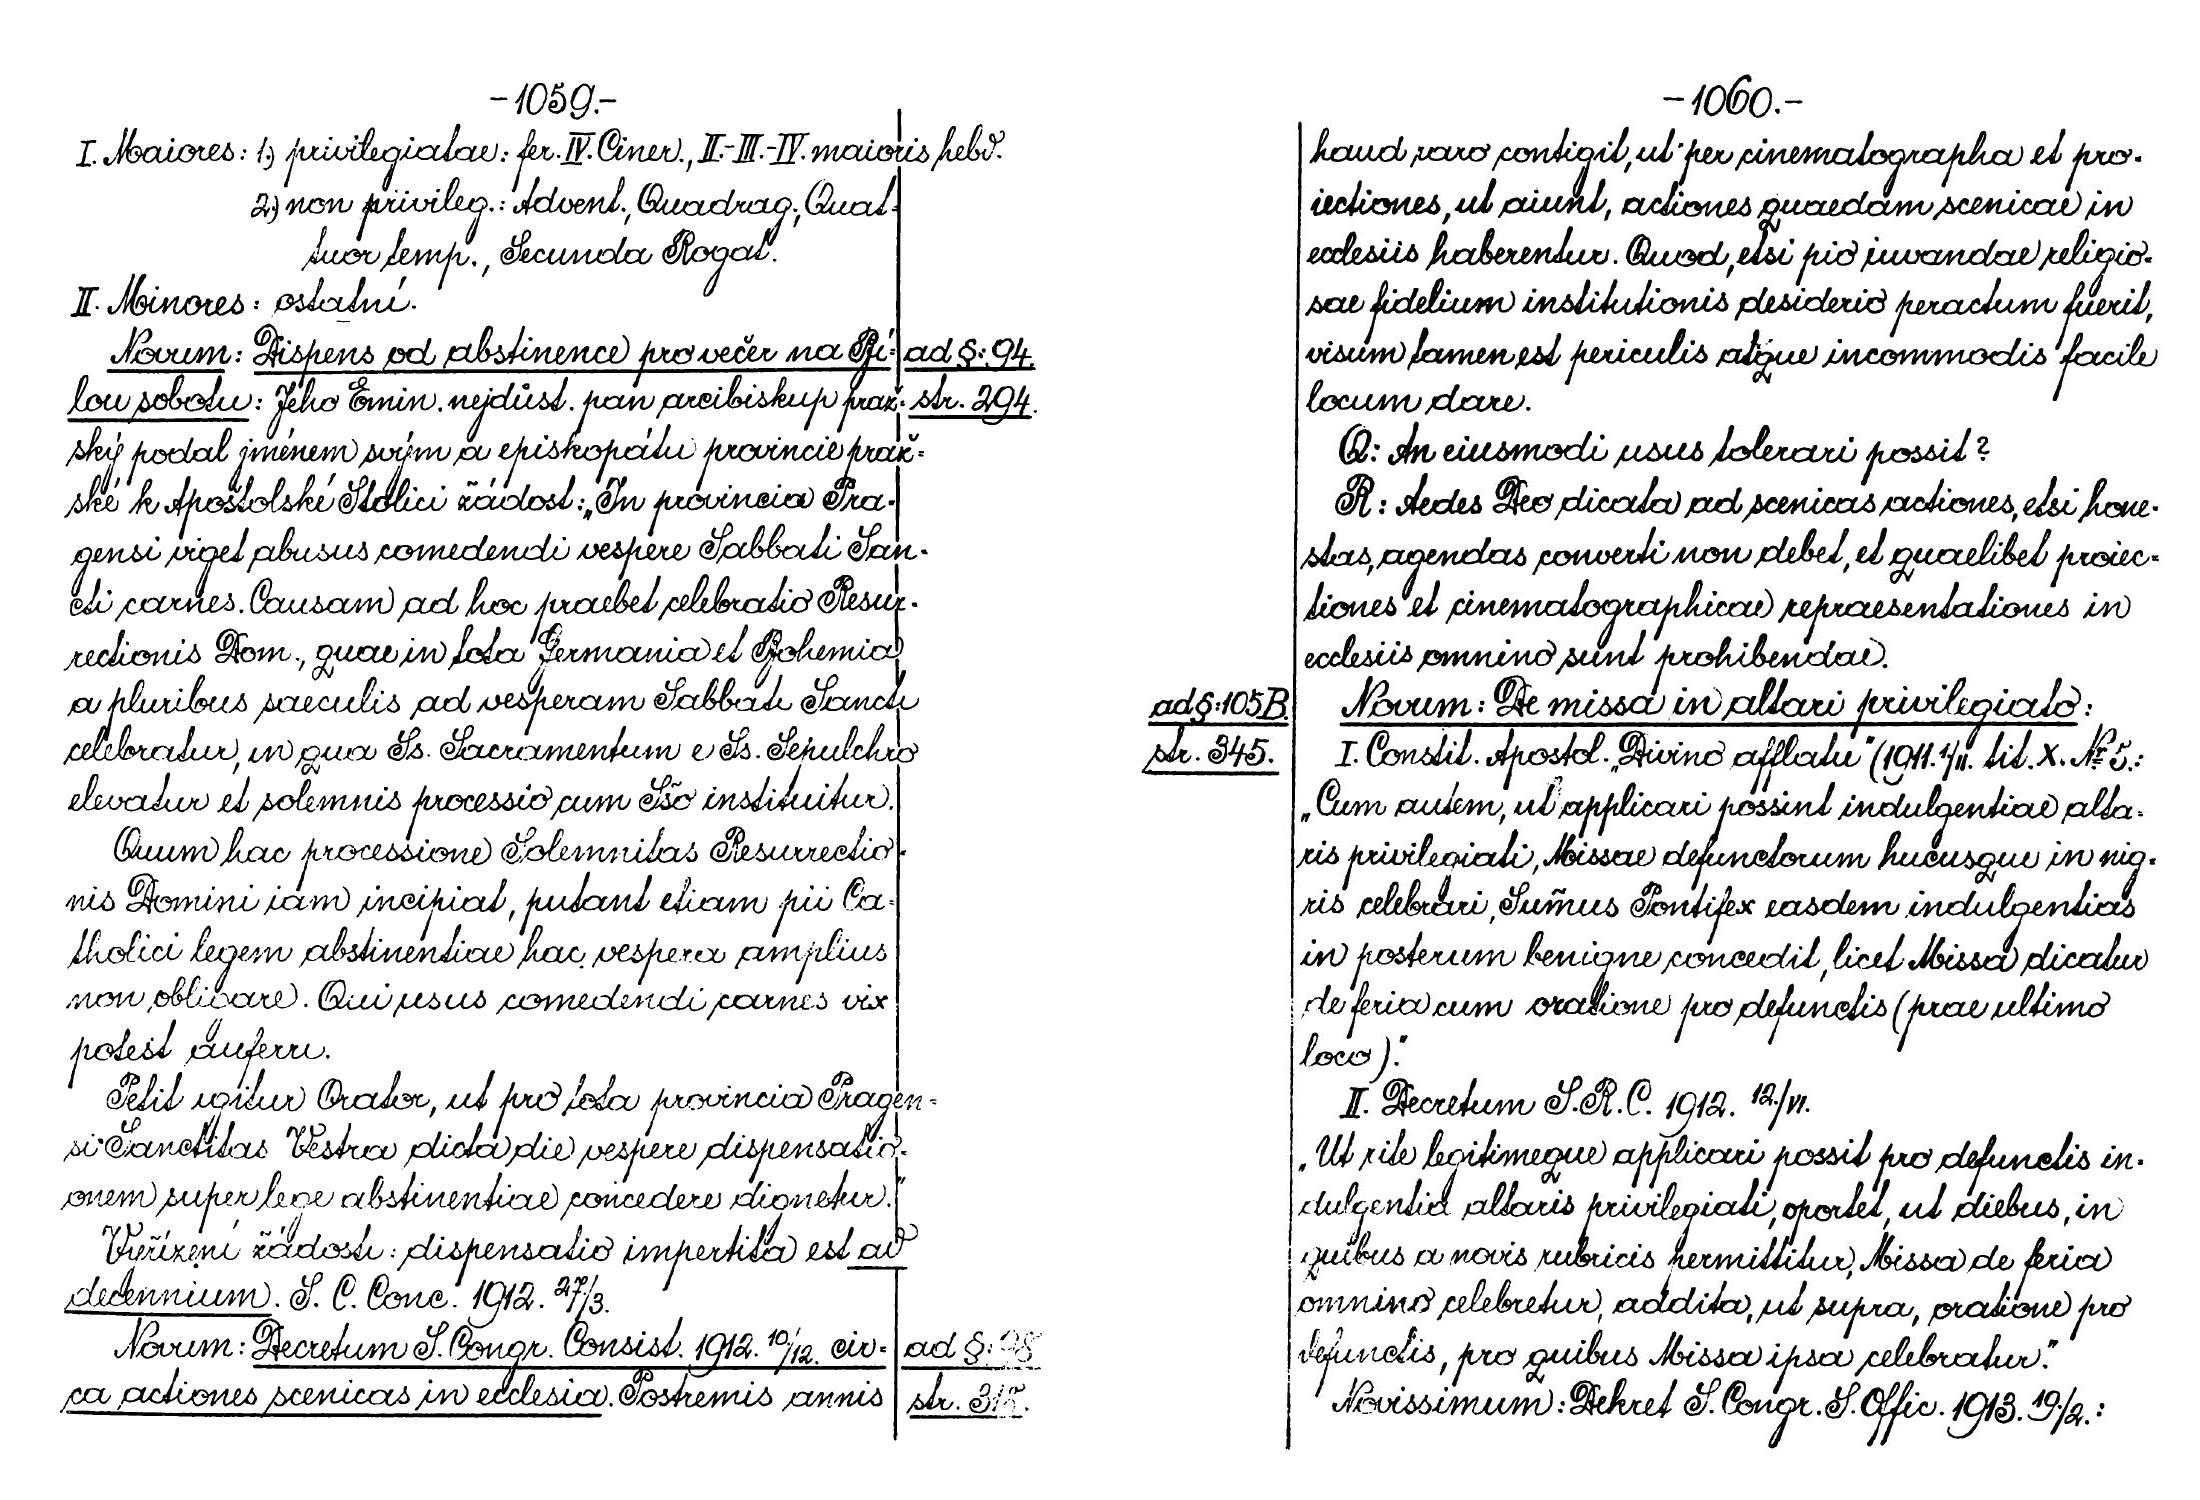 -1059.-
I. Maiores: 1.) privilegiatae: fer. IV. Ciner., II.-III.-IV. maioris hebd.
2.) non privileg.: Advent., Quadrag., Quat-
tuor temp., Secunda Rogat.
II. Minores: ostatní.
Novum: Dispens od abstinence pro večer na Bí- ad §: 94.
lou sobotu: Jeho Emin. nejdůst. pan arcibiskup praž- str. 294.
ský podal jménem svým a episkopátu provincie praž-
ské k Apoštolské Stolici žádost: „In provincia Pra-
gensi viget abusus comedendi vespere Sabbati San-
cti carnes. Causam ad hoc praebet celebratio Resur-
rectionis Dom., quae in tota Germania et Bohemia
a pluribus saeculis ad vesperam Sabbati Sancti
celebratur, in qua Ss. Sacramentum e Ss. Sepulchro
elevatur et solemnis processio cum Sšo instituitur.
Quum hac processione Solemnitas Resurrectio-
nis Domini iam incipiat, putant etiam pii Ca-
tholici legem abstinentiae hac vespera amplius
non obligare. Qui usus comedendi carnes vix
potest auferri.
Petit igitur Orator, ut pro tota provincia Pragen-
si Sanctitas Vestra dicta die vespere dispensatio-
onem super lege abstinentiae concedere dignetur."
Vyřízení žádosti: dispensatio impertita est ad
decennium. S. C. Conc. 1912. 27/3.
Novum: Decretum S. Congr. Consist. 1912. 10/12. cir- ad §: 98
ca actiones scenicas in ecclesia. Postremis annis str. 315.
-1060.-
haud raro contigit, ut per cinematographa et pro-
iectiones, ut aiunt, actiones quaedam scenicae in
ecclesiis haberentur. Quod, etsi pio iuvandae religio-
sae fidelium institutionis desiderio peractum fuerit,
visum tamen est periculis atque incommodis facile
locum dare.
Q: An eiusmodi usus tolerari possit?
R: Aedes Deo dicata ad scenicas actiones, etsi hone-
stas, agendas converti non debet, et quaelibet proiec-
tiones et cinematographicae repraesentationes in
ecclesiis omnino sunt prohibendae.
ad §: 105B. Novum: De missa in altari privilegiato:
str. 345. I. Constit. Apostol. „Divino afflatu" (1911. 1/11. tit. X. Nr. 5.:
„Cum autem, ut applicari possint indulgentiae alta-
ris privilegiati, Missae defunctorum hucusque in nig-
ris celebrari, Sum̃us Pontifex easdem indulgentias
in posterum benigne concedit, licet Missa dicatur
de feria cum oratione pro defunctis (prae ultimo
loco)."
II. Decretum S. R. C. 1912. 12./VI.
„Ut rite legitimeque applicari possit pro defunctis in-
dulgentia altaris privilegiati, oportet, ut diebus, in
quibus a novis rubricis permittitur, Missa de feria
omnino celebretur, addita, ut supra, oratione pro
defunctis, pro quibus Missa ipsa celebratur."
Novissimum: Dekret S. Congr. S. Offic. 1913. 19./2.: